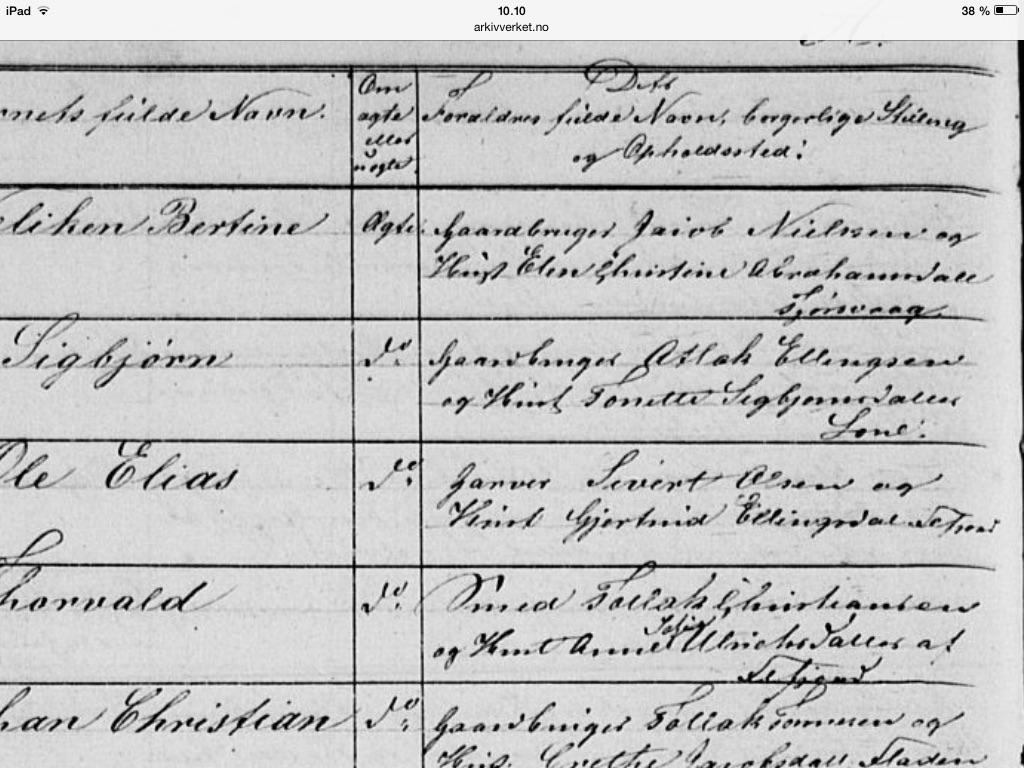 iPad 10.10 38 %
arkivverket.no
Om Dets
rnets fulde Navn. ægte Forældres fulde Navn, borgerlige Stilling
eller og Opholdssted.
uægte.
eliken Bertine Ægte. Gaardbruger Jacob Nielsen og
Hust Elen Christine Abrahamsdatter
Sigbjørn do. Gaardbruger Atlak Ellingsen
og Hust Tonette Sigbjørnsdatter
Lone.
Ole Elias do. Garver Sivert Olsen og
Hust Gjertrud Ellingsdat
horvald do. Smed Tollak Christiansen
og Hust Anne Ulrichsdatter af
han Christian do. Gaardbruger Tollak Tønnesen og
Hust. Grethe Jacobsdatt